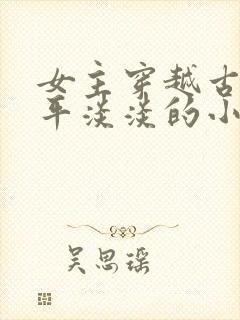 女主穿越古
平淡淡的小
吴思瑶